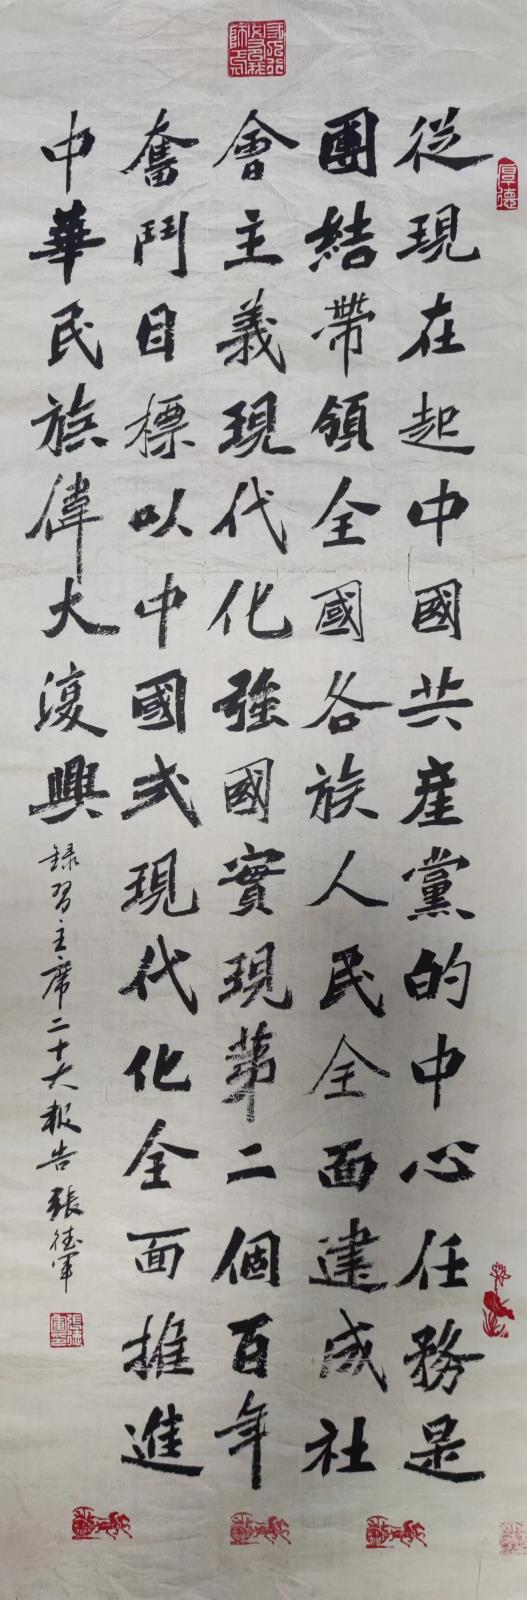 從現在起中國共產黨的中心任務是
團結帶領全國各族人民全面建成社
會主義現代化強國實現第二個百年
奮鬥目標以中國式現代化全面推進
中華民族偉大復興
錄習主席二十大報告 張德軍
厚德